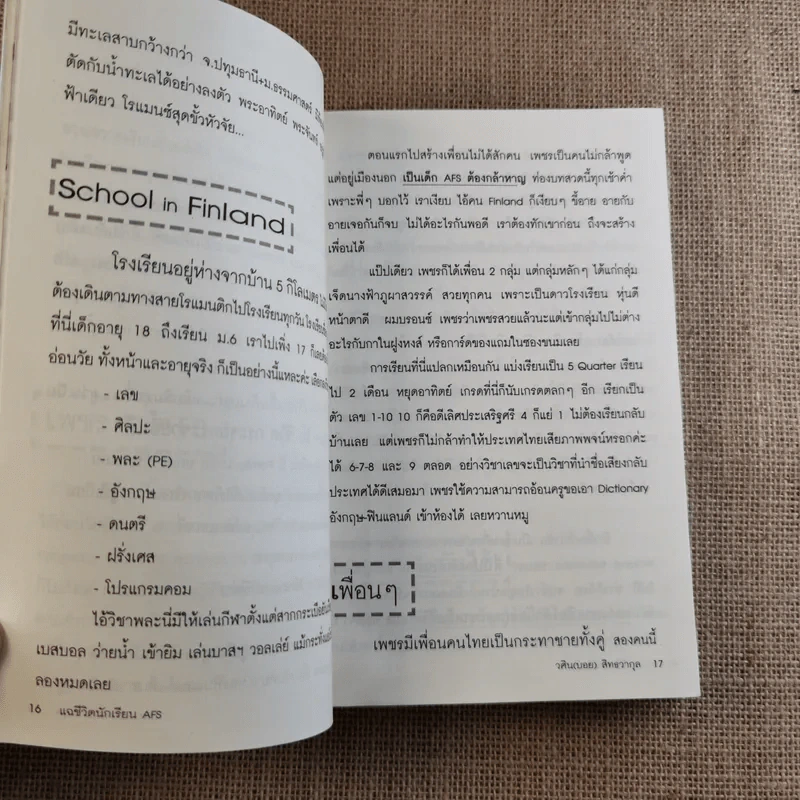 มีทะเลสาบกว้างกว่า จ.ปทุมธานี+ม.ธรรมศาสตร์
ตัดกับน้ำทะเลได้อย่างลงตัว พระอาทิตย์ พระจันทร์
ฟ้าเดียว โรแมนซ์สุดขั้วหัวจัย...
School in Finland
โรงเรียนอยู่ห่างจากบ้าน 5 กิโลเมตร
ต้องเดินตามทางสายโรแมนติกไปโรงเรียนทุกวัน
ที่นี่เด็กอายุ 18 ถึงเรียน ม.6 เราไปเพิ่ง 17
อ่อนวัย ทั้งหน้าและอายุจริง ก็เป็นอย่างนี้แหละค่ะ
- เลข
- ศิลปะ
- พละ (PE)
- อังกฤษ
- ดนตรี
- ฝรั่งเศส
- โปรแกรมคอม
ไอ้วิชาพละนี่มีให้เล่นกีฬาตั้งแต่สากกระเบือยัน
เบสบอล ว่ายน้ำ เข้ายิม เล่นบาสฯ วอลเล่ย์
ลองหมดเลย
16 แฉชีวิตนักเรียน AFS
ตอนแรกไปสร้างเพื่อนไม่ได้สักคน เพชรเป็นคนไม่กล้าพูด
แต่อยู่เมืองนอก เป็นเด็ก AFS ต้องกล้าหาญ ท่องบทสวดนี้ทุกเช้าค่ำ
เพราะพี่ๆ บอกไว้ เราเงียบ ไอ้คน Finland ก็เงียบๆ ขี้อาย อายกับ
อายเจอกันก็จบ ไม่ได้อะไรกันพอดี เราต้องทักเขาก่อน ถึงจะสร้าง
เพื่อนได้
แป๊ปเดียว เพชรก็ได้เพื่อน 2 กลุ่ม แต่กลุ่มหลักๆ ได้แก่กลุ่ม
เจ็ดนางฟ้าภูผาสวรรค์ สวยทุกคน เพราะเป็นดาวโรงเรียน หุ่นดี
หน้าตาดี ผมบรอนซ์ เพชรว่าเพชรสวยแล้วนะแต่เข้ากลุ่มไปไม่ต่าง
อะไรกับกาในฝูงหงส์ หรือการ์ดของแถมในซองขนมเลย
การเรียนที่นี่แปลกเหมือนกัน แบ่งเรียนเป็น 5 Quarter เรียน
ไป 2 เดือน หยุดอาทิตย์ เกรดที่นี่ก็นับเกรดตลกๆ อีก เรียกเป็น
ตัว เลข 1-10 10 ก็คือดีเลิศประเสริฐศรี 4 ก็แย่ 1 ไม่ต้องเรียนกลับ
บ้านเลย แต่เพชรก็ไม่กล้าทำให้ประเทศไทยเสียภาพพจน์หรอกค่ะ
ได้ 6-7-8 และ 9 ตลอด อย่างวิชาเลขจะเป็นวิชาที่นำชื่อเสียงกลับ
ประเทศได้ดีเสมอมา เพชรใช้ความสามารถอ้อนครูขอเอา Dictionary
อังกฤษ-ฟินแลนด์ เข้าห้องได้ เลยหวานหมู
เพื่อนๆ
เพชรมีเพื่อนคนไทยเป็นกระทาชายทั้งคู่ สองคนนี้
วศิน(บอย) สิทธวากุล 17